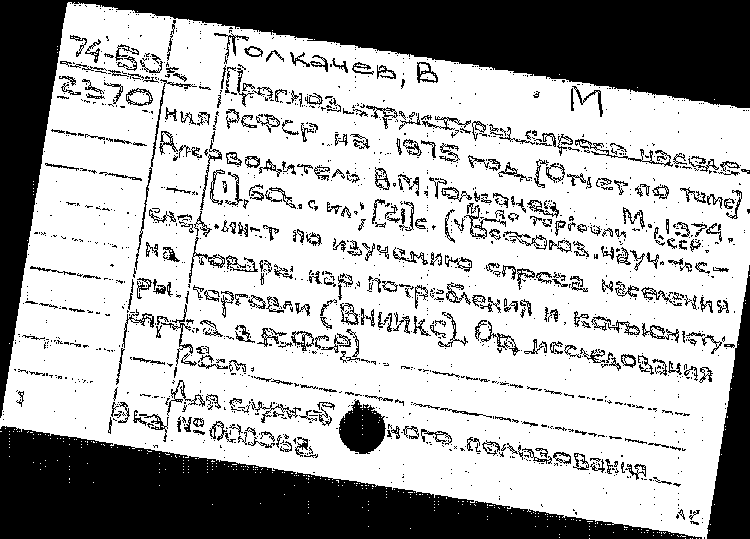 74-50к
2370
Толкачев, В М
Прогноз структуры спроса населе-
ния РСФСР на 1975 год. [Отчет по теме].
Руководитель В.М. Толкачев М., 1974.
[1], 60с. с ил.; [2]с. (М-во торговли СССР.
Всесоюз. науч.-ис-
след. ин-т по изучению спроса населения
на товары нар. потребления и конъюнкту-
ры торговли (ВНИИКС). Отд. исследования
спроса в РСФСР)
28см.
Для служебного пользования
Экз № 000068